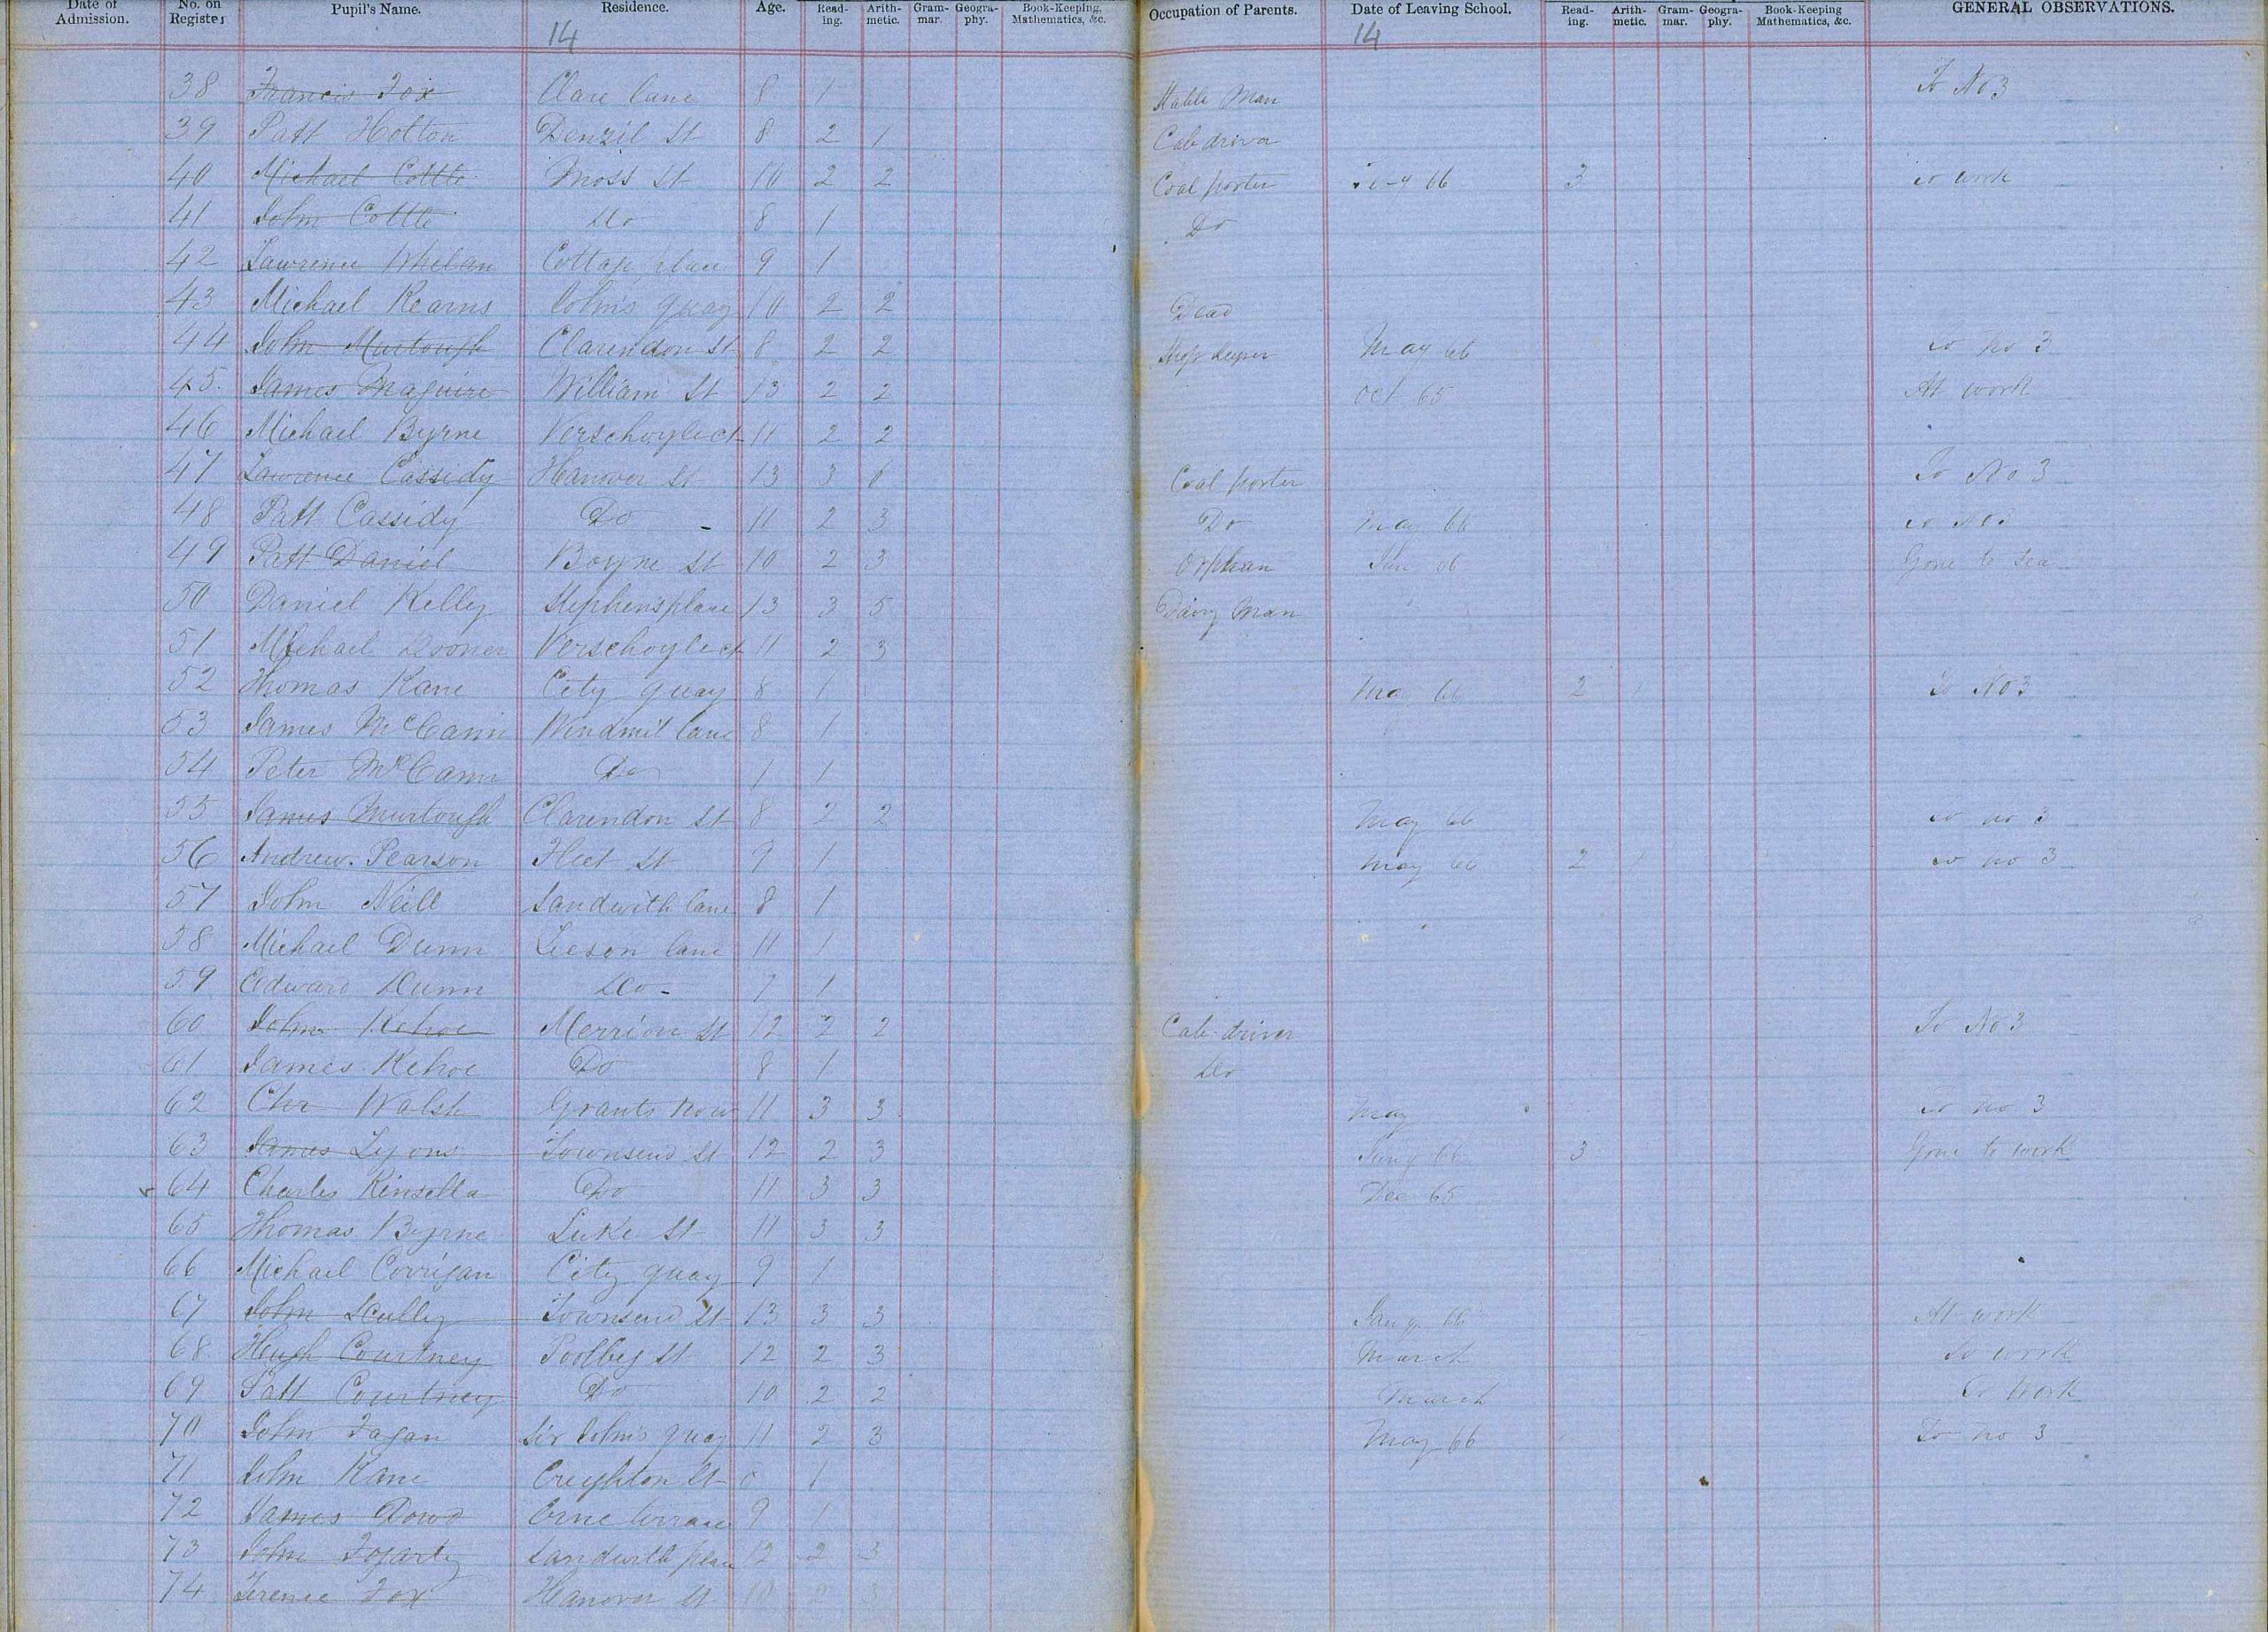 Date of Admission. No. on Register Pupil's Name. Residence. Age. Reading. Arithmetic. Grammar. Geography. Book-Keeping, Mathematics, &c. Occupation of Parents. Date of Leaving School. Reading. Arithmetic. Grammar. Geography. Book-Keeping Mathematics, &c. GENERAL OBSERVATIONS.
14 14
38 Francis Fox Clare lane 8 1 Stable Man To No 3
39 Patt Holton Denzil St 8 2 1 Cab driver
40 Michael Cottle Moss St 10 2 2 Coal porter 66 3 to work
41 John Cottle Do 8 1 Do
42 Lawrence Whelan Cottage place 9 1
43 Michael Kearns John's quay 10 2 2 Dead
44 John Murtough Clarendon St 8 2 2 Shop keeper May 66 to no 3
45. James Maguire William St 13 2 2 Oct 65 At work
46 Michael Byrne Verschoyle ct 11 2 2
47 Lawrence Cassidy Hanover St 13 3 Coal porter To No 3
48 Patt Cassidy Do 11 2 3 Do May 66 to No 3
49 Patt Daniel Boyne St 10 2 3 Orphan 66 Gone to sea
50 Daniel Kelly Stephen's place 13 3 5 Dairy Man
51 Michael Rooner Verschoyle ct 11 2 3
52 Thomas Kane City quay 8 1 May 66 2 1 To No 3
53 James McCann Windmil lane 8 1
54 Peter McCann Do 1
55 James Murtough Clarendon St 8 2 2 May 66 to no 3
56 Andrew Pearson Fleet St 9 1 May 66 2 1 to no 3
57 John Neill Sandwith lane 8 1
58 Michael Dunn Leeson lane 11 1
59 Edward Dunn Do 7 1
60 John Kehoe Merrion St 12 2 2 Cab-driver To No 3
61 James Kehoe Do 8 1 Do
62 Chr Walsh Grants row 11 3 3 May to no 3
63 James Lyons Townsend St 12 2 3 Jany 66 3 Gone to work
64 Charles Kinsella Do 11 3 3 Dec 65
65 Thomas Byrne Luke St 11 3 3
66 Michael Corrigan City quay 9 1
67 John Scully Townsend St 13 3 3 Jany 66 At work
68 Hugh Courtney Poolbeg St 12 2 3 March To work
69 Patt Courtney Do 10 2 2 March To work
70 John Fagan Sir John's quay 11 2 3 May 66 To no 3
71 John Kane Creighton St 1
72 James Dowd Erne terrace 9 1
73 John Fogarty Sandwith place 12 2 3
74 Terence Fox Hanover St 10 2 3